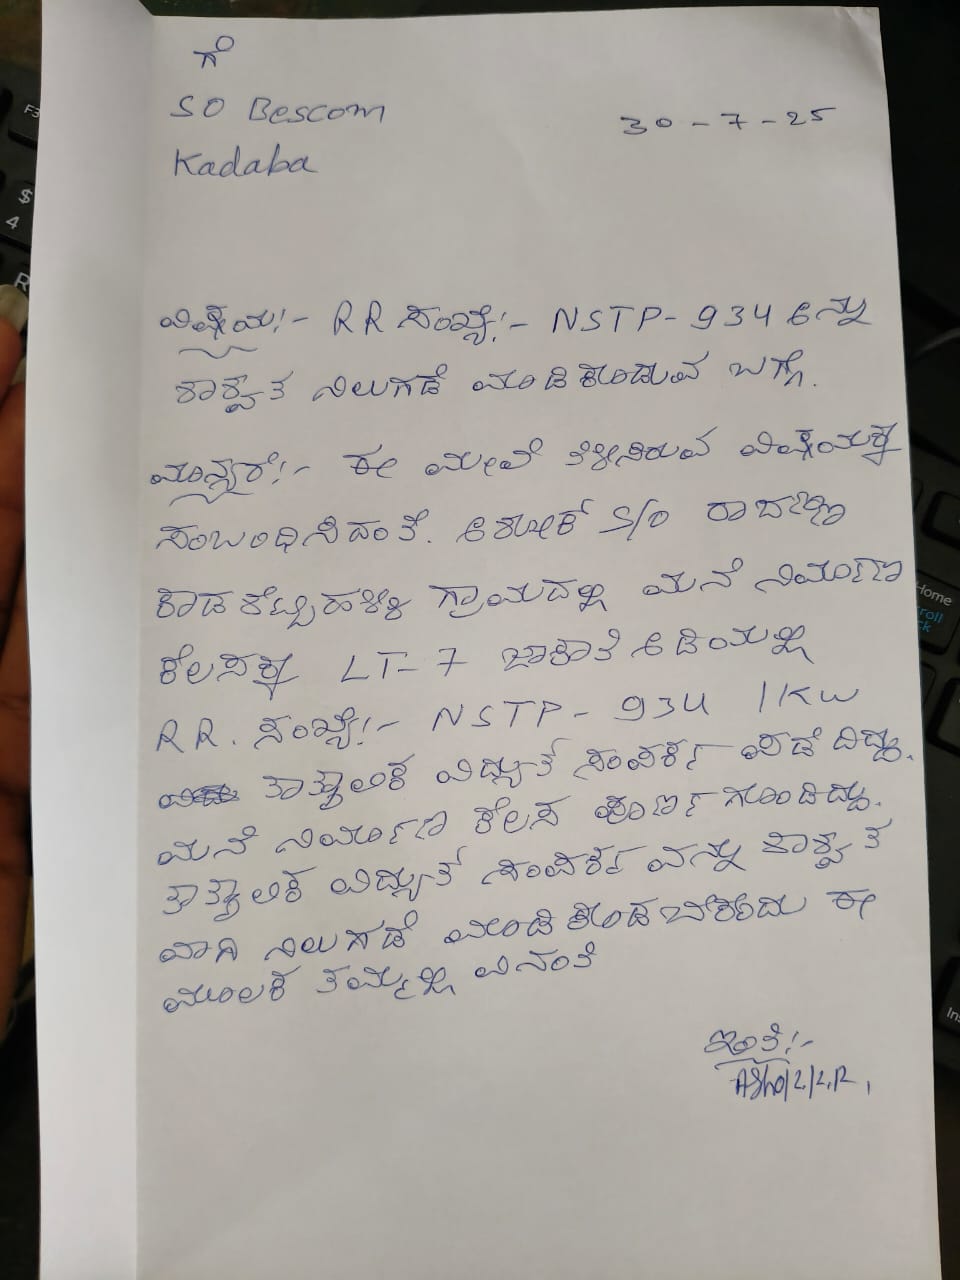 ಗೆ
SO Bescom
30-7-25
Kadaba
ವಿಷಯ:- RR ಸಂಖ್ಯೆ:- NSTP-934 ಅನ್ನು
ಶಾಶ್ವತ ನಿಲುಗಡೆ ಮಾಡಿಕೊಡುವ ಬಗ್ಗೆ.
ಮಾನ್ಯರೆ:- ಈ ಮೇಲೆ ತಿಳಿಸಿರುವ ವಿಷಯಕ್ಕೆ
ಸಂಬಂಧಿಸಿದಂತೆ. ಅಶೋಕ್ S/O ರಾಜಣ್ಣ
ಕಾಡಶೆಟ್ಟಿಹಳ್ಳಿ ಗ್ರಾಮದಲ್ಲಿ ಮನೆ ನಿರ್ಮಾಣ
ಕೆಲಸಕ್ಕೆ LT-7 ಜಾಕಾತಿ ಅಡಿಯಲ್ಲಿ
RR. ಸಂಖ್ಯೆ:- NSTP-934 1KW
ತಾತ್ಕಾಲಿಕ ವಿದ್ಯುತ್ ಸಂಪರ್ಕ ಪಡೆದಿದ್ದು.
ಮನೆ ನಿರ್ಮಾಣ ಕೆಲಸ ಪೂರ್ಣಗೊಂಡಿದ್ದು.
ತಾತ್ಕಾಲಿಕ ವಿದ್ಯುತ್ ಸಂಪರ್ಕವನ್ನು ಶಾಶ್ವತ
ವಾಗಿ ನಿಲುಗಡೆ ಮಾಡಿಕೊಡಬೇಕೆಂದು ಈ
ಮೂಲಕ ತಮ್ಮಲ್ಲಿ ವಿನಂತಿ
ಇಂತಿ:-